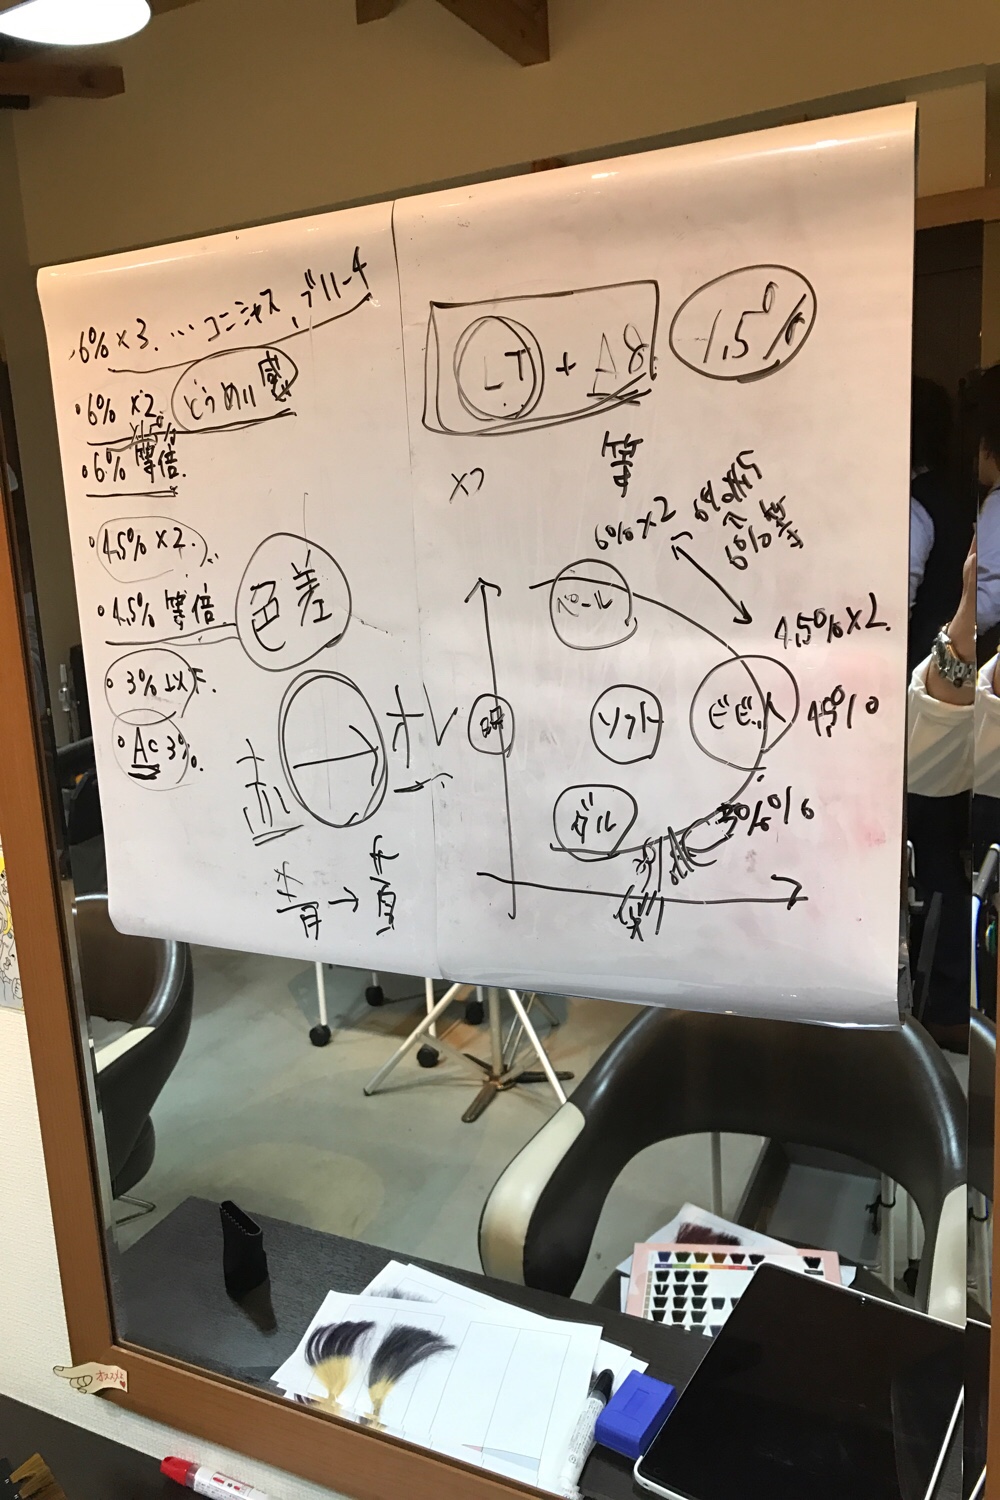 6%×3. … コニシャス ブリーチ
・6% ×2
とうめい感
×1.5%
・6% 等倍.
・4.5% ×2.
・4.5% 等倍
色差
・3%以下.
・Ac 3%.
赤
オレ
青→黄
LT + 48
1.5%
×2
等
6%×2
6%×1.5
6%等
4.5%×2.
4.5%
3%
明
ペール
ソフト
ビビット
ダル
オススメ